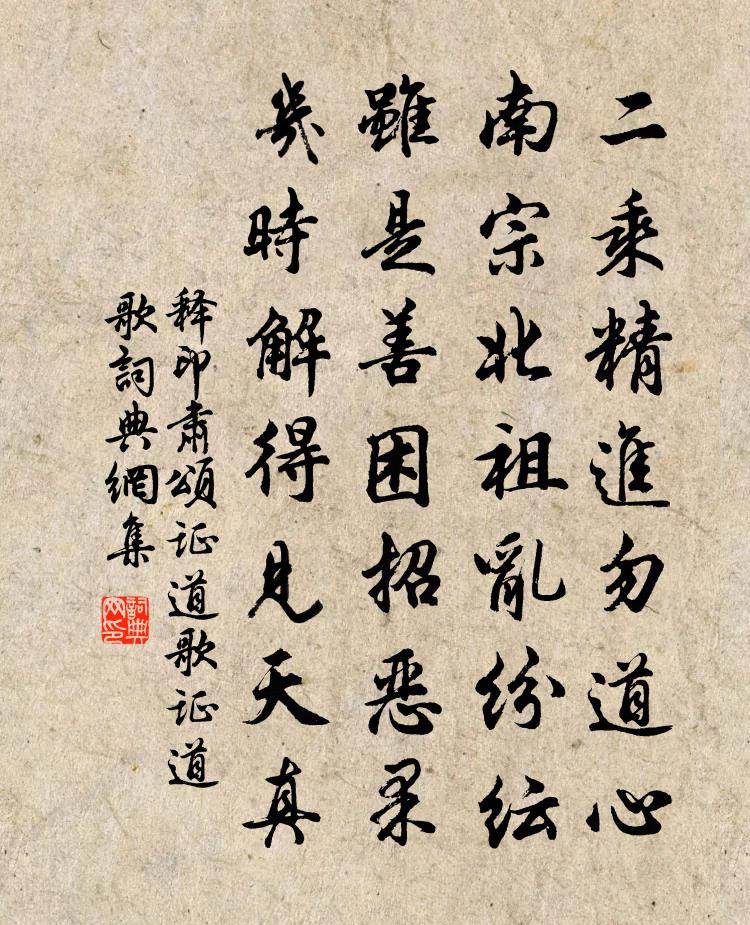 二乘精進勿道心
南宗北祖亂紛紜
雖是善困招惡果
幾時解得見天真
释印肅頌证道歌证道
歌詞典網集
詞典
网印